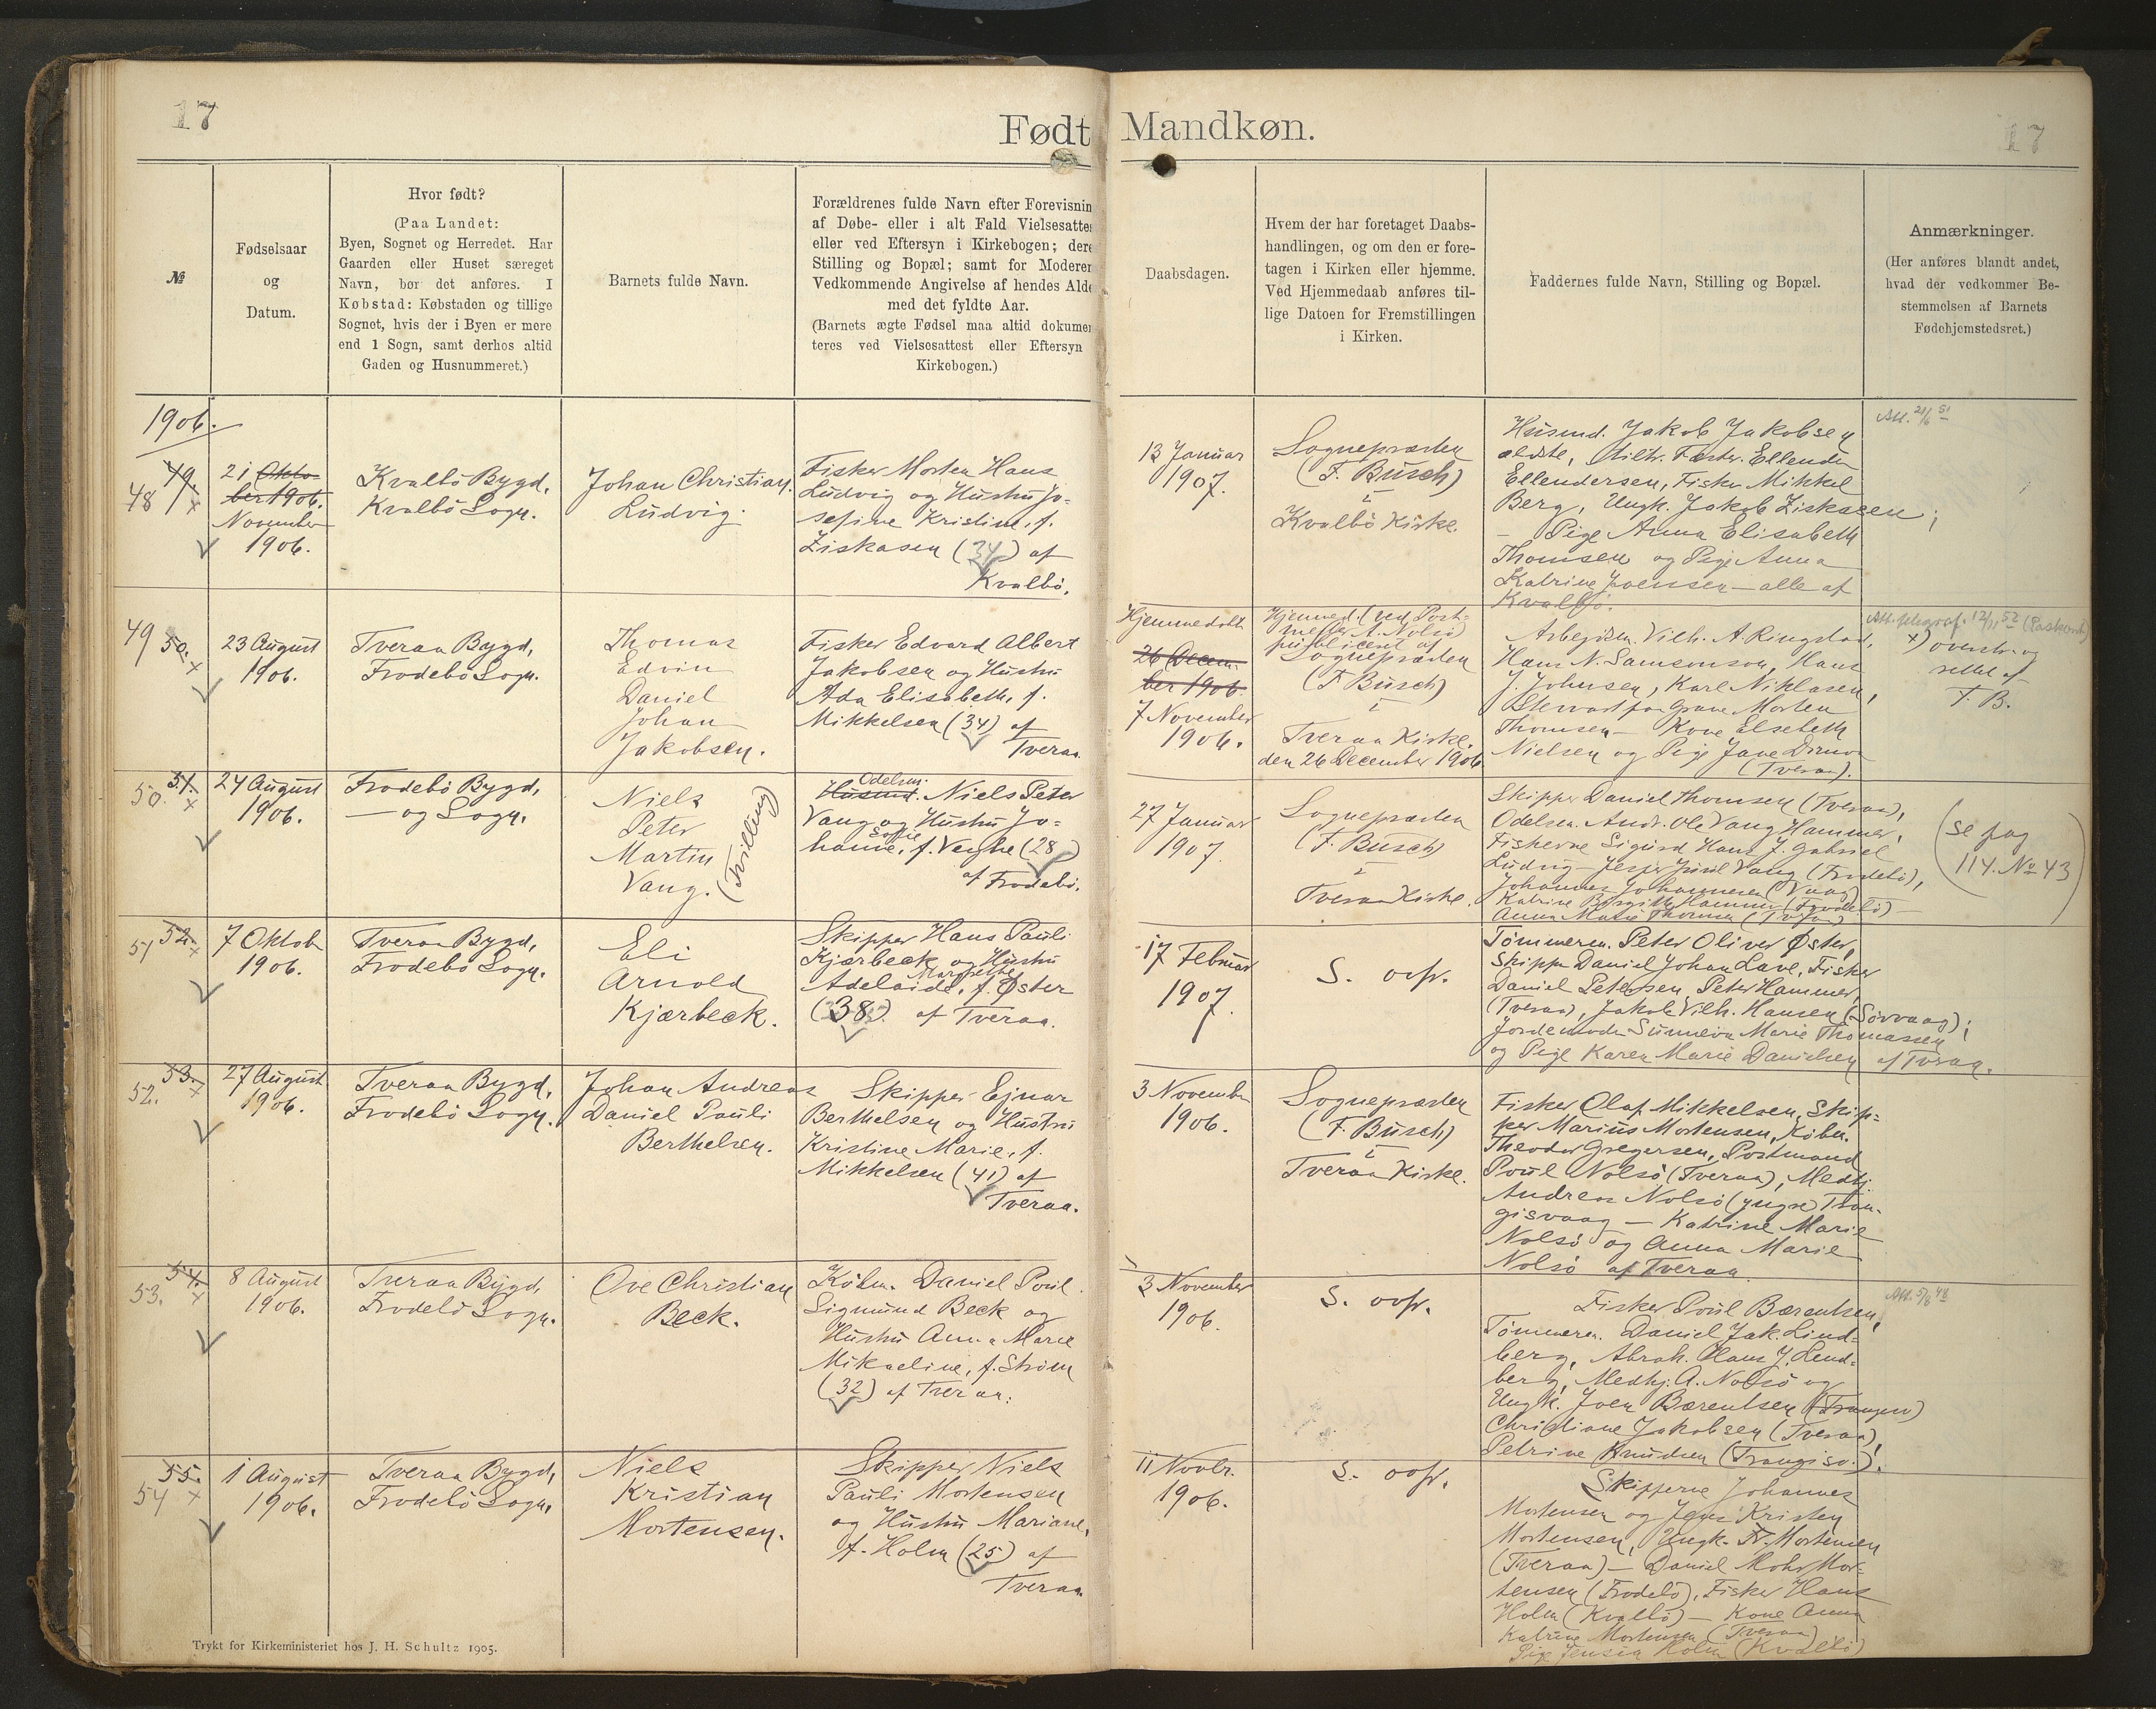 17
Født Mandkøn.
17
№
Fødselsaar
og
Datum.
Hvor født?
(Paa Landet:
Byen, Sognet og Herredet. Har
Gaarden eller Huset særeget
Navn, bør det anføres. I
Købstad: Købstaden og tillige
Sognet, hvis der i Byen er mere
end 1 Sogn, samt derhos altid
Gaden og Husnummeret.)
Barnets fulde Navn.
Forældrenes fulde Navn efter Forevisnin
af Døbe- eller i alt Fald Vielsesatte
eller ved Eftersyn i Kirkebogen; dere
Stilling og Bopæl; samt for Moderen
Vedkommende Angivelse af hendes Alde
med det fyldte Aar.
(Barnets ægte Fødsel maa altid dokumen
teres ved Vielsesattest eller Eftersyn
Kirkebogen.)
Daabsdagen.
Hvem der har foretaget Daabs-
handlingen, og om den er fore-
tagen i Kirken eller hjemme.
Ved Hjemmedaab anføres til-
lige Datoen for Fremstillingen
i Kirken.
Faddernes fulde Navn, Stilling og Bopæl.
Anmærkninger.
(Her anføres blandt andet,
hvad der vedkommer Be-
stemmelsen af Barnets
Fødehjemstedsret.)
1906.
49.
48 ×
21 Okto-
ber 1906.
November
1906.
Kvalbö Bygd,
Kvalbö Sogn.
Johan Christian
Ludvig.
Fisker Morten Hans
Ludvig og Hustru Jo-
sefine Kristine, f.
Ziskasen (34) af
Kvalbö.
13 Januar
1907.
Sognepræsten
(F. Busch)
i
Kvalbö Kirke.
Husmd. Jakob Jakobsen
ældste, Ellendur
Ellendersen, Fisker Mikkel
Berg, Ungk. Jakob Ziskasen;
– Pige Anna Elisabeth
Thomsen og Pige Anna
Katrine Joensen – alle af
Kvalbö.
Att. 21/6 51
49 50. ×
23 August
1906.
Tveraa Bygd,
Frodebö Sogn.
Thomas
Edvin
Daniel
Johan
Jakobsen.
Fisker Edvard Albert
Jakobsen og Hustru
Ada Elisabeth, f.
Mikkelsen (34) af
Tveraa.
Hjemmedøbt
26 Decem-
ber 1906.
7 November
1906.
Hjemmed. (ved Post-
mester A. Nolsö)
publiceret af
Sognepræsten
(F. Busch)
i
Tveraa Kirke.
den 26 December 1906
Arbejdsm. Vilh. A. Ringstad,
Hans N. Samsonson, Hans
J. Johnsen, Karl Niklasen,
Thomsen – Kone Elsebeth
Nielsen og Pige Jane
(Tveraa).
×) overstr. og
rettet af
F. B.
51.
50. ×
24 August
1906.
Frodebö Bygd,
– og Sogn.
Niels
Peter
Martin
Vang.
(Tvilling)
Odelsm.
Husmd. Niels Peter
Vang og Hustru Jo-
Sofie
hanne, f. Veyhe (28)
af Frodebö.
27 Januar
1907.
Sognepræsten
(F. Busch)
i
Tveraa Kirke.
Skipper Daniel Thomsen (Tveraa),
Odelsm. Andr. Ole Vang Hammer,
Fiskerne Sigurd Hans J. Gabriel
Ludvig – Jesper Juul Vang (Frodebö),
Johannes Johannesen (Vaag)
Katrine Birgitte Hammer (Frodebö) –
Anna Marie Thomsen (Tveraa)
(se pag
114. № 43)
51 52. ×
7 Oktob
1906.
Tveraa Bygd,
Frodebö Sogn.
Eli
Arnold
Kjærbeck.
Skipper Hans Pauli
Kjærbeck og Hustru
Margrethe
Adelaide, f. Øster
(38) af Tveraa.
17 Februar
1907.
S. ovfr.
Tömmerm. Peter Oliver Øster,
Skipper Daniel Johan Lave, Fisker
Daniel Petersen, Peter Hammer,
(Tveraa), Jakob Vilh. Hansen (Sörvaag);
Jordemoder Sunneva Marie Thomassen
og Pige Karen Marie Danielsen af Tveraa.
53.
52. ×
27 August
1906.
Tveraa Bygd,
Frodebö Sogn.
Johan Andreas
Daniel Pauli
Berthelsen.
Skipper Ejnar
Berthelsen og Hustru
Kristine Marie, f.
Mikkelsen (41) af
Tveraa.
3 November
1906.
Sognepræsten
(F. Busch)
i
Tveraa Kirke.
Fisker Olaf Mikkelsen, Skip-
per Marius Mortensen, Købm.
Theodor Gregersen, Postmand
Poul Nolsö (Tveraa), Medhj.
Andreas Nolsö (yngre) Tran-
gisvaag – Katrine Marie
Nolsö og Anna Marie
Nolsö af Tveraa.
54.
53. ×
8 August
1906.
Tveraa Bygd,
Frodebö Sogn.
Ove Christian
Beck.
Købm. Daniel Poul
Sigmund Beck og
Hustru Anna Marie
Mikaeline, f. Strøm
(32) af Tveraa.
3 November
1906.
S. ovfr.
Fisker Poul Bærentsen,
Tömmerm. Daniel Jak. Lind-
berg, Abrah. Hans J. Lind-
berg, Medhj. A. Nolsö og
Ungk. Joen Bærentsen (Trangisv)
Christiane Jakobsen (Tveraa),
Petrine Knudsen (Trangisv.).
Att. 5/8 48
55.
54 ×
1 August
1906.
Tveraa Bygd,
Frodebö Sogn.
Niels
Kristian
Mortensen.
Skipper Niels
Pauli Mortensen
og Hustru Mariane,
f. Holm (25) af
Tveraa.
11 Novbr.
1906.
S. ovfr.
Skipperne Johannes
Mortensen og Jens Kristen
Mortensen, Ungk. Fr. Mortensen
(Tveraa) – Daniel Mohr Mor-
tensen (Frodebö), Fisker Hans
Holm (Kvalbö) – Kone Anna
Katrine Mortensen (Tveraa)
Pige Jensia Holm (Kvalbö)
Trykt for Kirkeministeriet hos J. H. Schultz 1905.